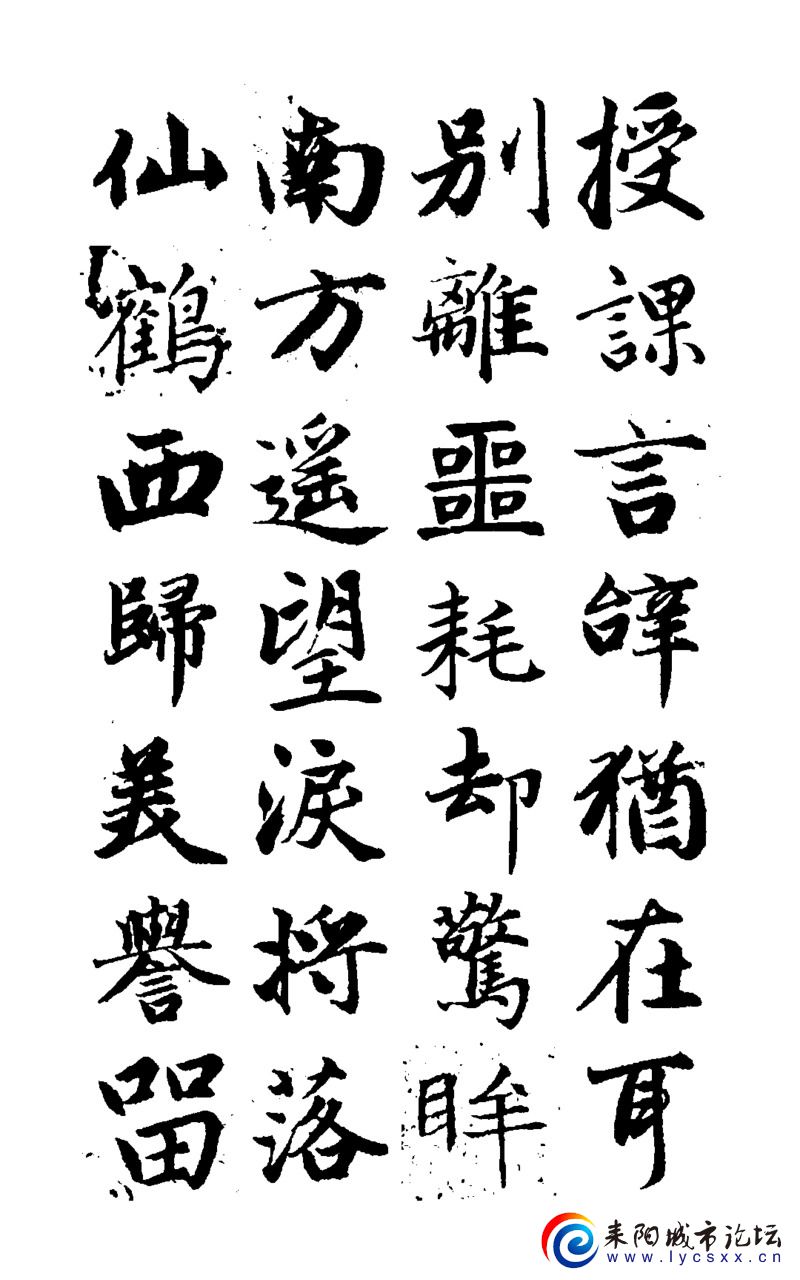 授課言辞猶在耳
別離噩耗却驚眸
南方遥望淚将落
仙鶴西歸美譽留
耒阳城市论坛
www.lycsxx.cn